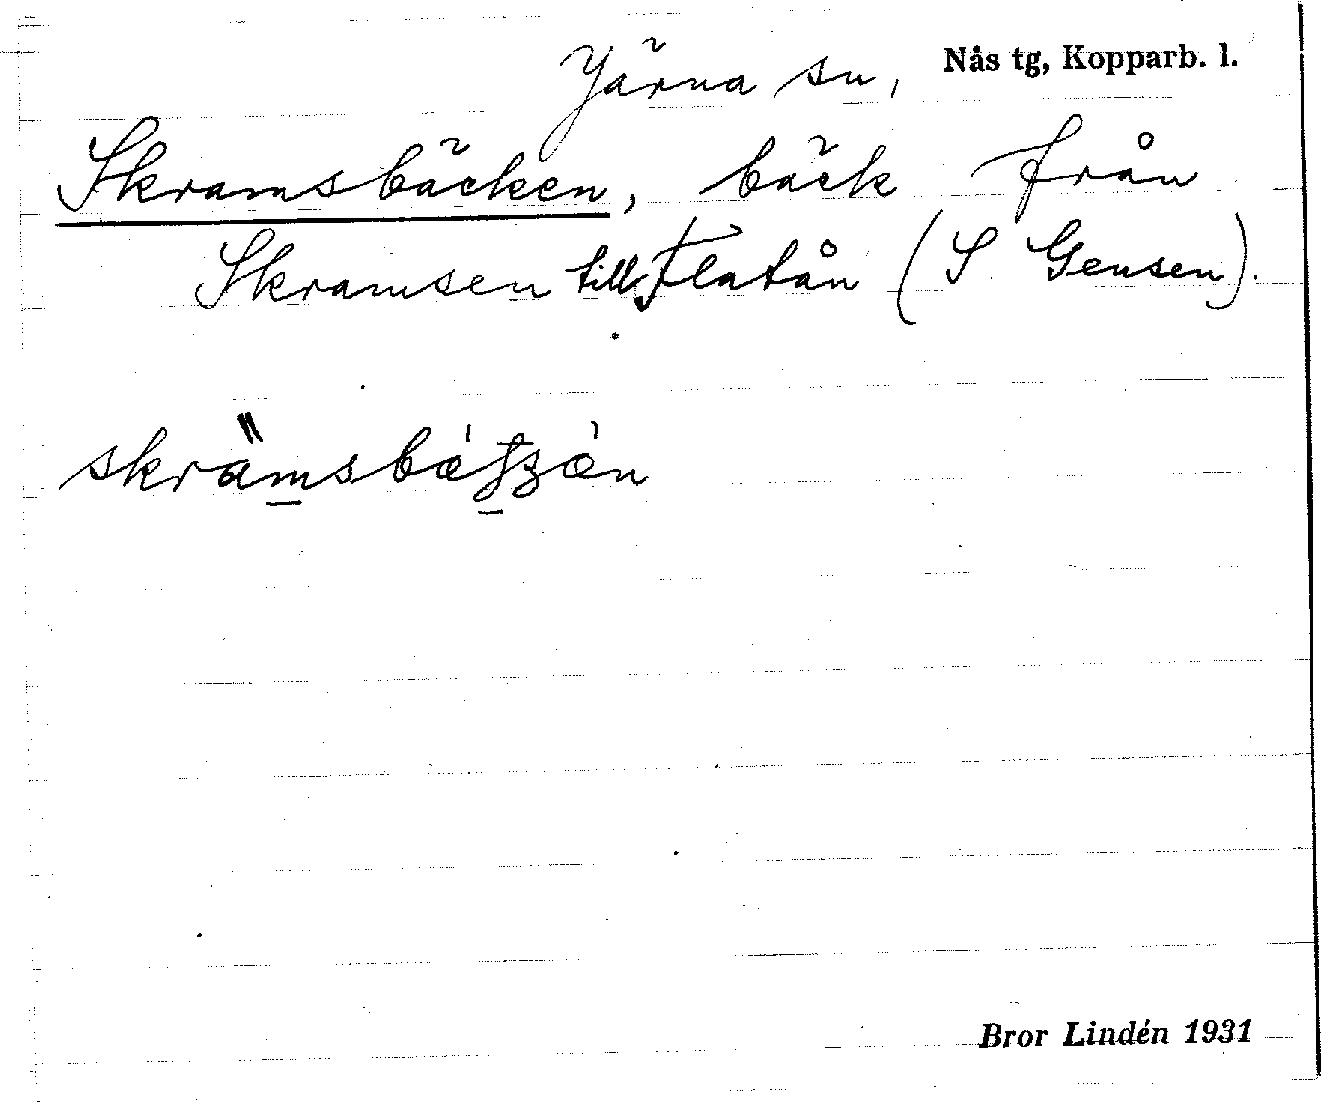 Järna sn, Nås tg, Kopparb. l.
Skramsbäcken, bäck från
Skramsen till Flatån (S Gensen).
Bror Lindén 1931